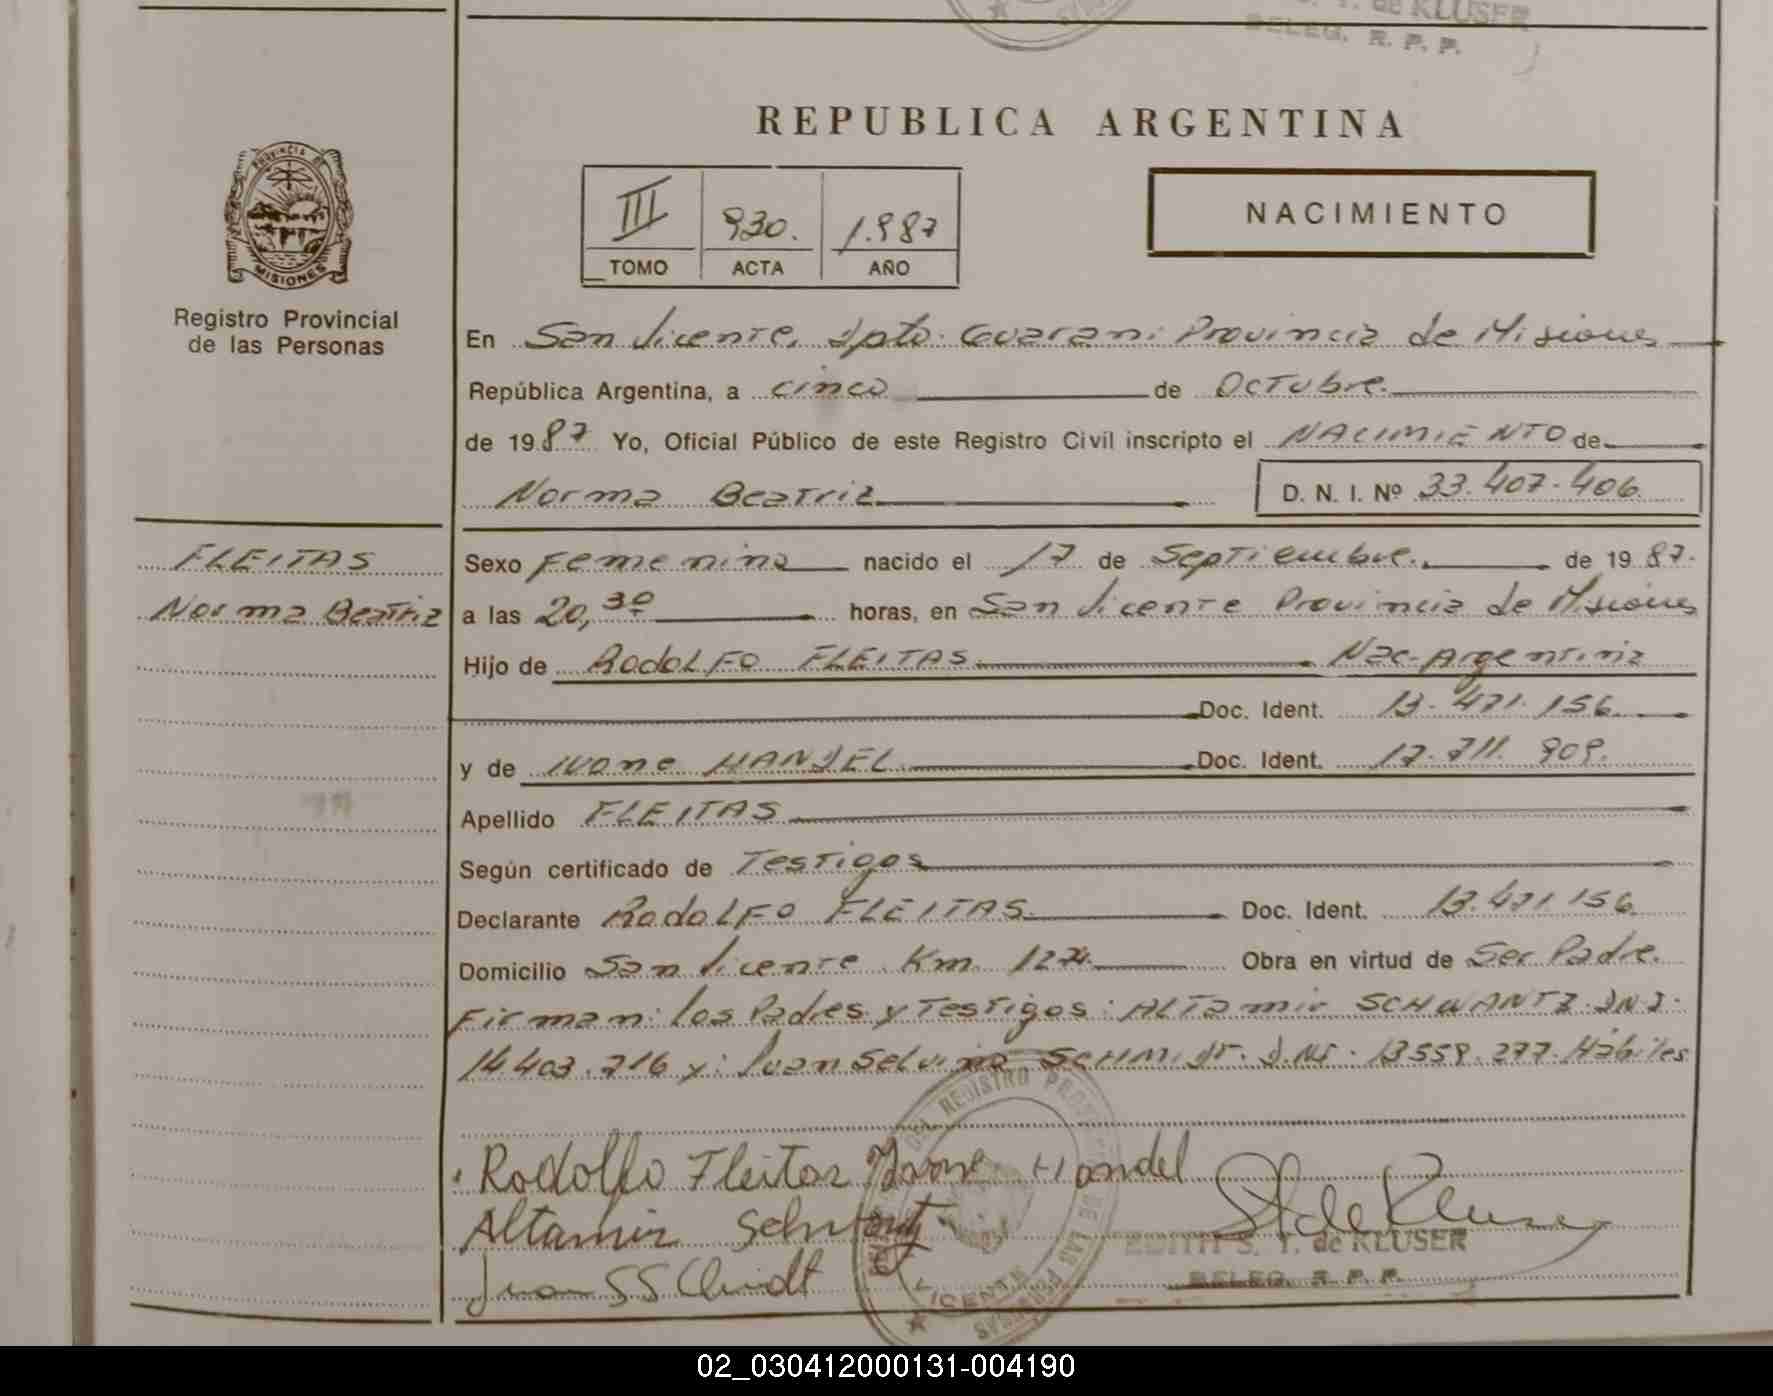 T. de KLUSER
DELEG. R. P. P.
REPUBLICA ARGENTINA
PROVINCIA DE
MISIONES
Registro Provincial
de las Personas
III 930. 1.987
TOMO ACTA AÑO
NACIMIENTO
En San Vicente, Dpto. Guarani Provincia de Misiones
República Argentina, a cinco de Octubre.
de 1987 Yo, Oficial Público de este Registro Civil inscripto el NACIMIENTO de
Norma Beatriz D. N. I. Nº 33.407.406
FLEITAS
Norma Beatriz
Sexo Femenino nacido el 17 de Septiembre. de 1987.
a las 20,30 horas, en San Vicente Provincia de Misiones
Hijo de Rodolfo FLEITAS Nac. Argentina
Doc. Ident. 13.471.156
y de Ivone HANDEL Doc. Ident. 17.711.909.
Apellido FLEITAS
Según certificado de Testigos
Declarante Rodolfo FLEITAS Doc. Ident. 13.471.156
Domicilio San Vicente Km. 1274 Obra en virtud de Ser Padre.
Firman: los Padres y Testigos: Altamir SCHWANTZ. D.N.I.
14.403.716 y: Juan Selvino SCHMIDT. D.N.I. 13.559.277. Hábiles
Rodolfo Fleitas Ivone Handel
Altamir Schwantz
Juan S Schmidt
EDITH S. T. de KLUSER
DELEG. R. P. P.
DEL REGISTRO DE LAS PERSONAS
VICENTE
02_030412000131-004190